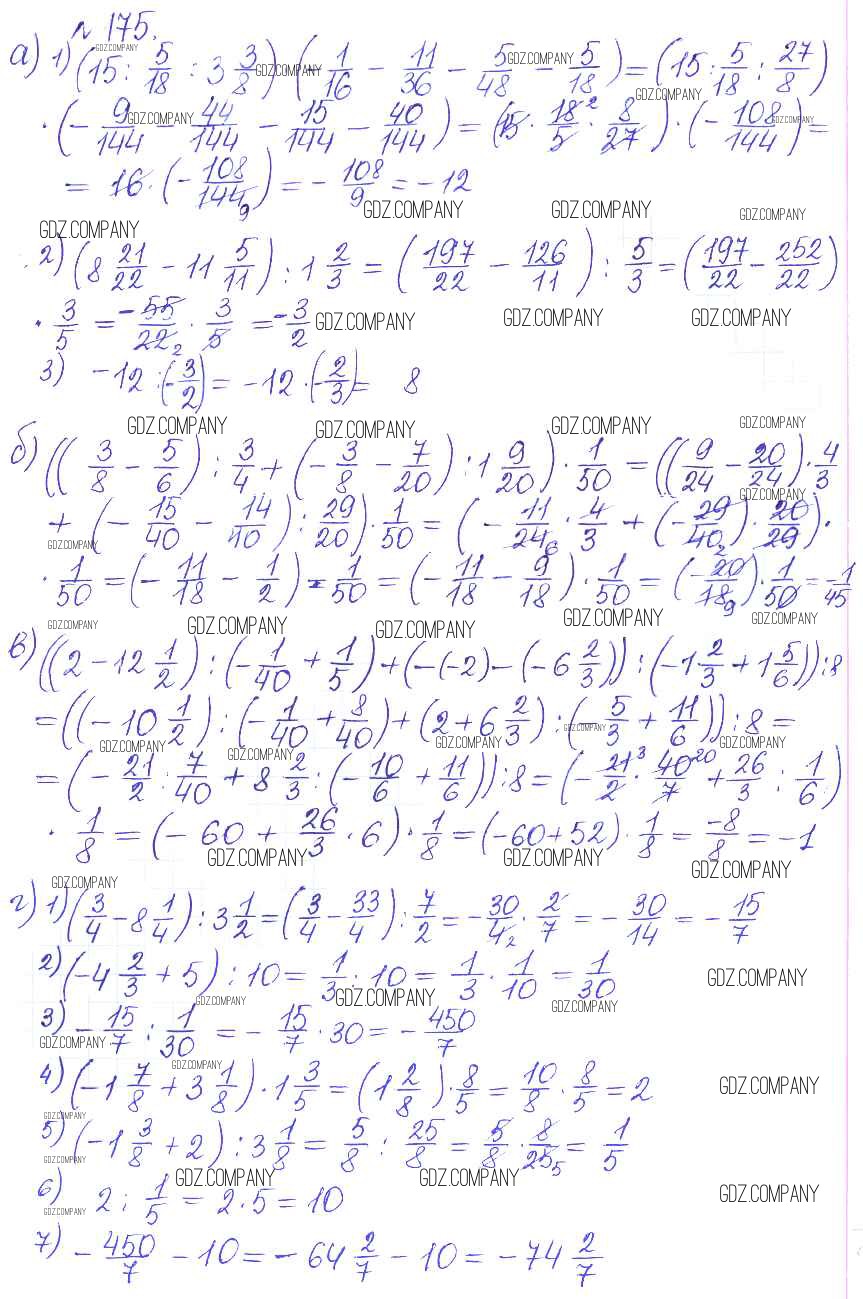 № 175.
а) 1) (15 : 5/18 : 3 3/8) (- 1/16 - 11/36 - 5/48 - 5/18) = (15 : 5/18 : 27/8)
· (- 9/144 - 44/144 - 15/144 - 40/144) = (15 · 18/5 · 8/27) · (- 108/144) =
= 16 · (- 108/144) = - 108/9 = -12
2) (8 21/22 - 11 5/11) : 1 2/3 = (197/22 - 126/11) : 5/3 = (197/22 - 252/22)
· 3/5 = - 55/22 · 3/5 = - 3/2
3) -12 : (- 3/2) = -12 · (- 2/3) = 8
б) ((3/8 - 5/6) : 3/4 + (- 3/8 - 7/20) : 1 9/20) · 1/50 = ((9/24 - 20/24) · 4/3
+ (- 15/40 - 14/10) : 29/20) · 1/50 = (- 11/24 · 4/3 + (- 29/40) · 20/29) ·
· 1/50 = (- 11/18 - 1/2) · 1/50 = (- 11/18 - 9/18) · 1/50 = (- 20/18) · 1/50 = - 1/45
в) ((2 - 12 1/2) : (- 1/40 + 1/5) + (-(-2) - (-6 2/3)) : (-1 2/3 + 1 5/6)) : 8
= ((-10 1/2) : (- 1/40 + 8/40) + (2 + 6 2/3) : (- 5/3 + 11/6)) : 8 =
= (- 21/2 : 7/40 + 8 2/3 : (- 10/6 + 11/6)) : 8 = (- 21/2 · 40/7 + 26/3 : 1/6)
· 1/8 = (- 60 + 26/3 · 6) · 1/8 = (-60 + 52) · 1/8 = -8/8 = -1
г) 1) (3/4 - 8 1/4) : 3 1/2 = (3/4 - 33/4) : 7/2 = - 30/4 · 2/7 = - 30/14 = - 15/7
2) (-4 2/3 + 5) : 10 = 1/3 : 10 = 1/3 · 1/10 = 1/30
3) - 15/7 : 1/30 = - 15/7 · 30 = - 450/7
4) (-1 7/8 + 3 1/8) · 1 3/5 = (1 2/8) · 8/5 = 10/8 · 8/5 = 2
5) (-1 3/8 + 2) : 3 1/8 = 5/8 : 25/8 = 5/8 · 8/25 = 1/5
6) 2 : 1/5 = 2 · 5 = 10
7) - 450/7 - 10 = - 64 2/7 - 10 = - 74 2/7
GDZ.COMPANY